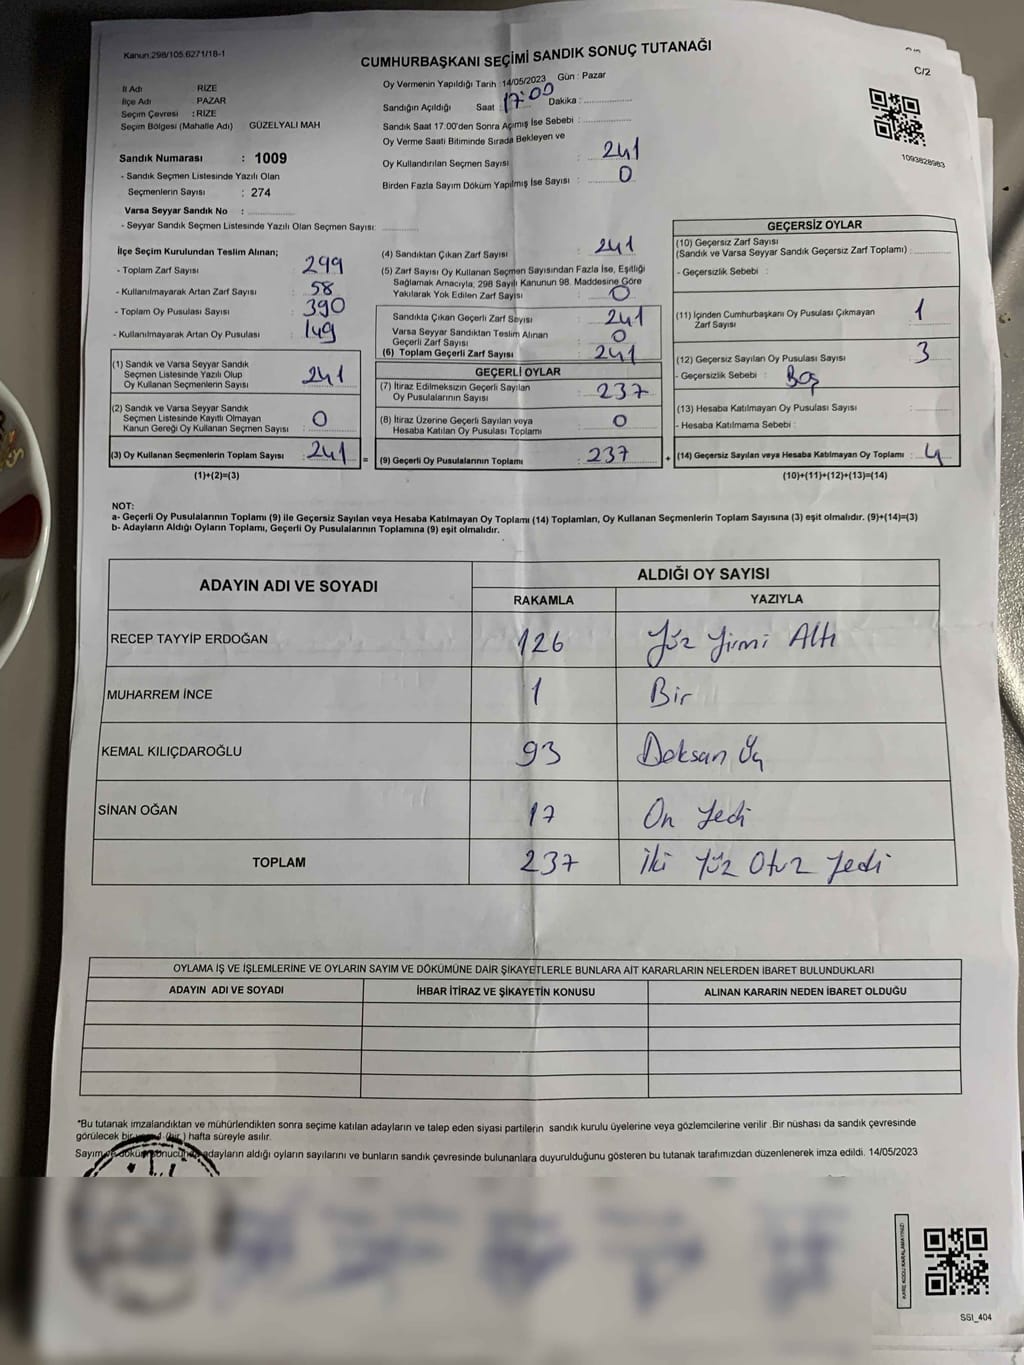 Kanun:298/105.6271/18-1
CUMHURBAŞKANI SEÇİMİ SANDIK SONUÇ TUTANAĞI
C/2
İl Adı RİZE
İlçe Adı PAZAR
Seçim Çevresi : RİZE
Seçim Bölgesi (Mahalle Adı) GÜZELYALI MAH
Sandık Numarası : 1009
- Sandık Seçmen Listesinde Yazılı Olan
Seçmenlerin Sayısı : 274
Varsa Seyyar Sandık No :
- Seyyar Sandık Seçmen Listesinde Yazılı Olan Seçmen Sayısı:
Oy Vermenin Yapıldığı Tarih : 14/05/2023 Gün : Pazar
Sandığın Açıldığı Saat : 17:00 Dakika :
Sandık Saat 17:00'den Sonra Açımış İse Sebebi :
Oy Verme Saati Bitiminde Sırada Bekleyen ve
Oy Kullandırılan Seçmen Sayısı : 241
Birden Fazla Sayım Döküm Yapılmış İse Sayısı : 0
1093828983
İlçe Seçim Kurulundan Teslim Alınan;
- Toplam Zarf Sayısı 299
- Kullanılmayarak Artan Zarf Sayısı 58
- Toplam Oy Pusulası Sayısı 390
- Kullanılmayarak Artan Oy Pusulası 149
(1) Sandık ve Varsa Seyyar Sandık
Seçmen Listesinde Yazılı Olup
Oy Kullanan Seçmenlerin Sayısı 241
(2) Sandık ve Varsa Seyyar Sandık
Seçmen Listesinde Kayıtlı Olmayan
Kanun Gereği Oy Kullanan Seçmen Sayısı 0
(3) Oy Kullanan Seçmenlerin Toplam Sayısı : 241 =
(1)+(2)=(3)
(4) Sandıktan Çıkan Zarf Sayısı : 241
(5) Zarf Sayısı Oy Kullanan Seçmen Sayısından Fazla İse, Eşitliği
Sağlamak Amacıyla, 298 Sayılı Kanunun 98. Maddesine Göre
Yakılarak Yok Edilen Zarf Sayısı 0
Sandıkta Çıkan Geçerli Zarf Sayısı : 241
Varsa Seyyar Sandıktan Teslim Alınan
Geçerli Zarf Sayısı : 0
(6) Toplam Geçerli Zarf Sayısı : 241
GEÇERLİ OYLAR
(7) İtiraz Edilmeksizin Geçerli Sayılan
Oy Pusulalarının Sayısı : 237
(8) İtiraz Üzerine Geçerli Sayılan veya
Hesaba Katılan Oy Pusulası Toplamı : 0
(9) Geçerli Oy Pusulalarının Toplamı : 237 +
GEÇERSİZ OYLAR
(10) Geçersiz Zarf Sayısı
(Sandık ve Varsa Seyyar Sandık Geçersiz Zarf Toplamı) :
- Geçersizlik Sebebi :
(11) İçinden Cumhurbaşkanı Oy Pusulası Çıkmayan
Zarf Sayısı : 1
(12) Geçersiz Sayılan Oy Pusulası Sayısı : 3
- Geçersizlik Sebebi : Boş
(13) Hesaba Katılmayan Oy Pusulası Sayısı :
- Hesaba Katılmama Sebebi :
(14) Geçersiz Sayılan veya Hesaba Katılmayan Oy Toplamı : 4
(10)+(11)+(12)+(13)=(14)
NOT:
a- Geçerli Oy Pusulalarının Toplamı (9) ile Geçersiz Sayılan veya Hesaba Katılmayan Oy Toplamı (14) Toplamları, Oy Kullanan Seçmenlerin Toplam Sayısına (3) eşit olmalıdır. (9)+(14)=(3)
b- Adayların Aldığı Oyların Toplamı, Geçerli Oy Pusulalarının Toplamına (9) eşit olmalıdır.
ADAYIN ADI VE SOYADI ALDIĞI OY SAYISI
RAKAMLA YAZIYLA
RECEP TAYYİP ERDOĞAN 126 Yüz Yirmi Altı
MUHARREM İNCE 1 Bir
KEMAL KILIÇDAROĞLU 93 Doksan Üç
SİNAN OĞAN 17 On Yedi
TOPLAM 237 İki Yüz Otuz Yedi
OYLAMA İŞ VE İŞLEMLERİNE VE OYLARIN SAYIM VE DÖKÜMÜNE DAİR ŞİKAYETLERLE BUNLARA AİT KARARLARIN NELERDEN İBARET BULUNDUKLARI
ADAYIN ADI VE SOYADI İHBAR İTİRAZ VE ŞİKAYETİN KONUSU ALINAN KARARIN NEDEN İBARET OLDUĞU
*Bu tutanak imzalandıktan ve mühürlendikten sonra seçime katılan adayların ve talep eden siyasi partilerin sandık kurulu üyelerine veya gözlemcilerine verilir .Bir nüshası da sandık çevresinde
görülecek bir (bir ) hafta süreyle asılır.
Sayım ve döküm sonucunda adayların aldığı oyların sayılarını ve bunların sandık çevresinde bulunanlara duyurulduğunu gösteren bu tutanak tarafımızdan düzenlenerek imza edildi. 14/05/2023
KARE KODU KARALAMAYINIZ!
SSI_404